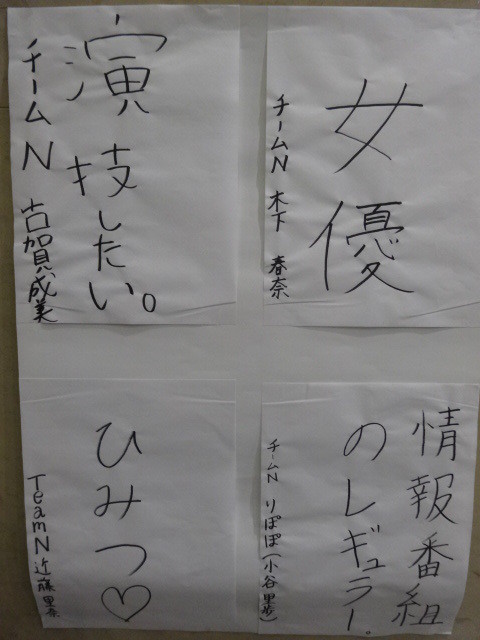 女優
チームN 木下 春奈
演技したい。
チームN 古賀成美
情報番組
のレギュラー.
チームN りぽぽ(小谷里歩)
ひみつ♡
TeamN 近藤里奈